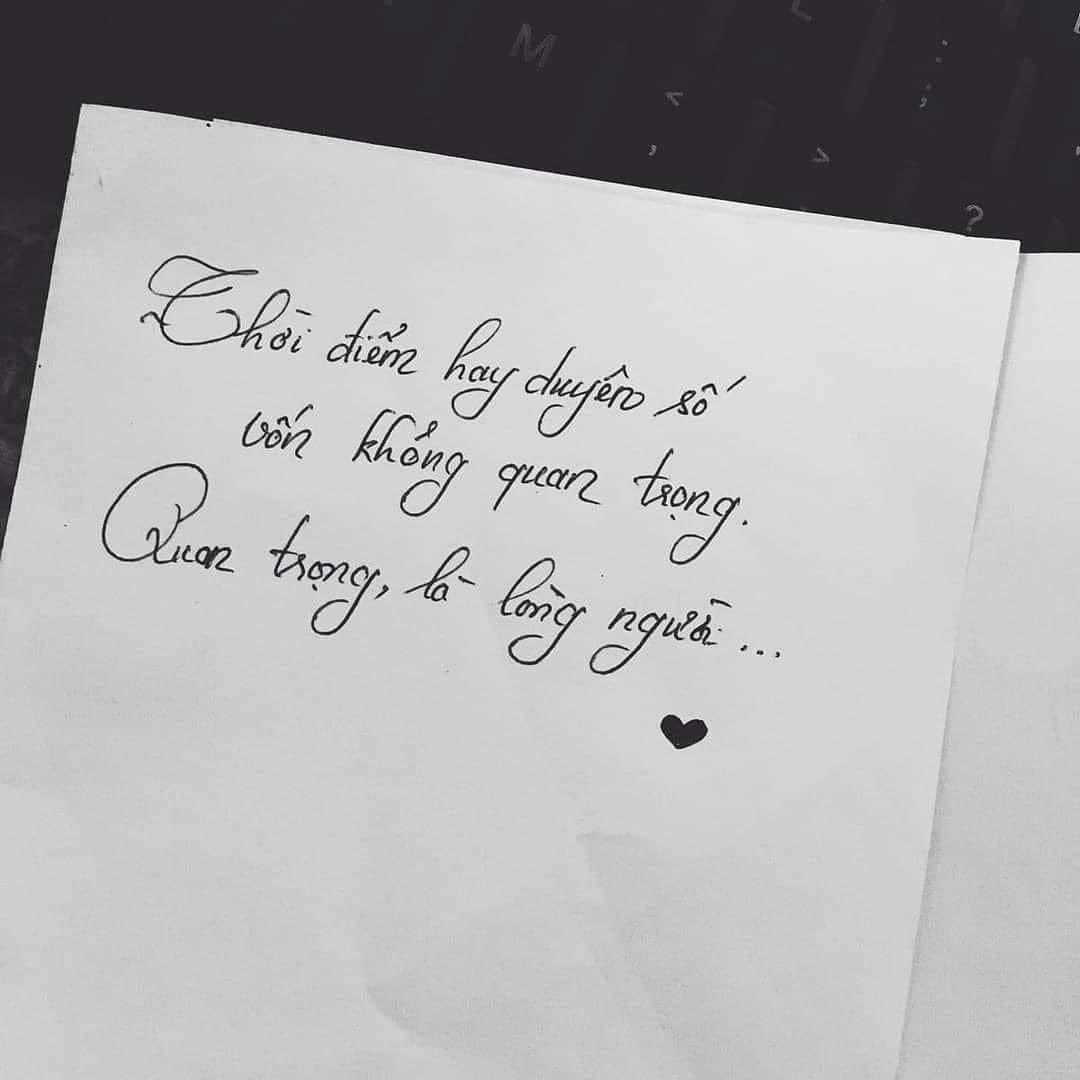 M
L
< ,
> 
: ;
?
Thời điểm hay duyên số
vốn không quan trọng.
Quan trọng, là lòng người...